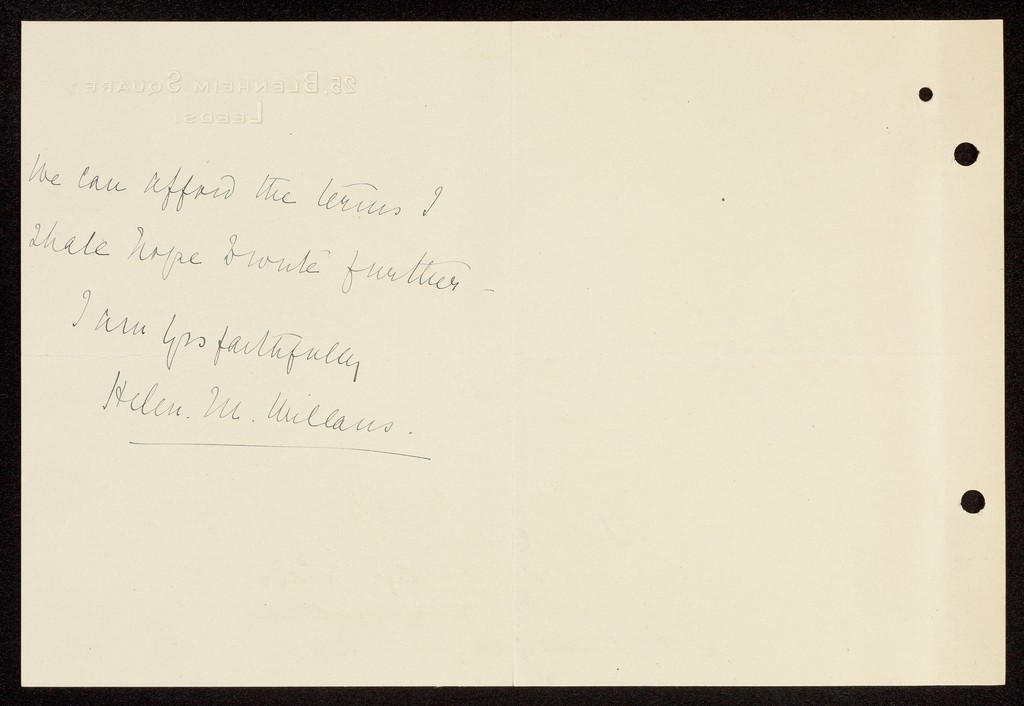 25, BLENHEIM SQUARE,
LEEDS.
We can afford the terms I
shall hope to write further -
I am yrs faithfully
Helen. M. Willans.